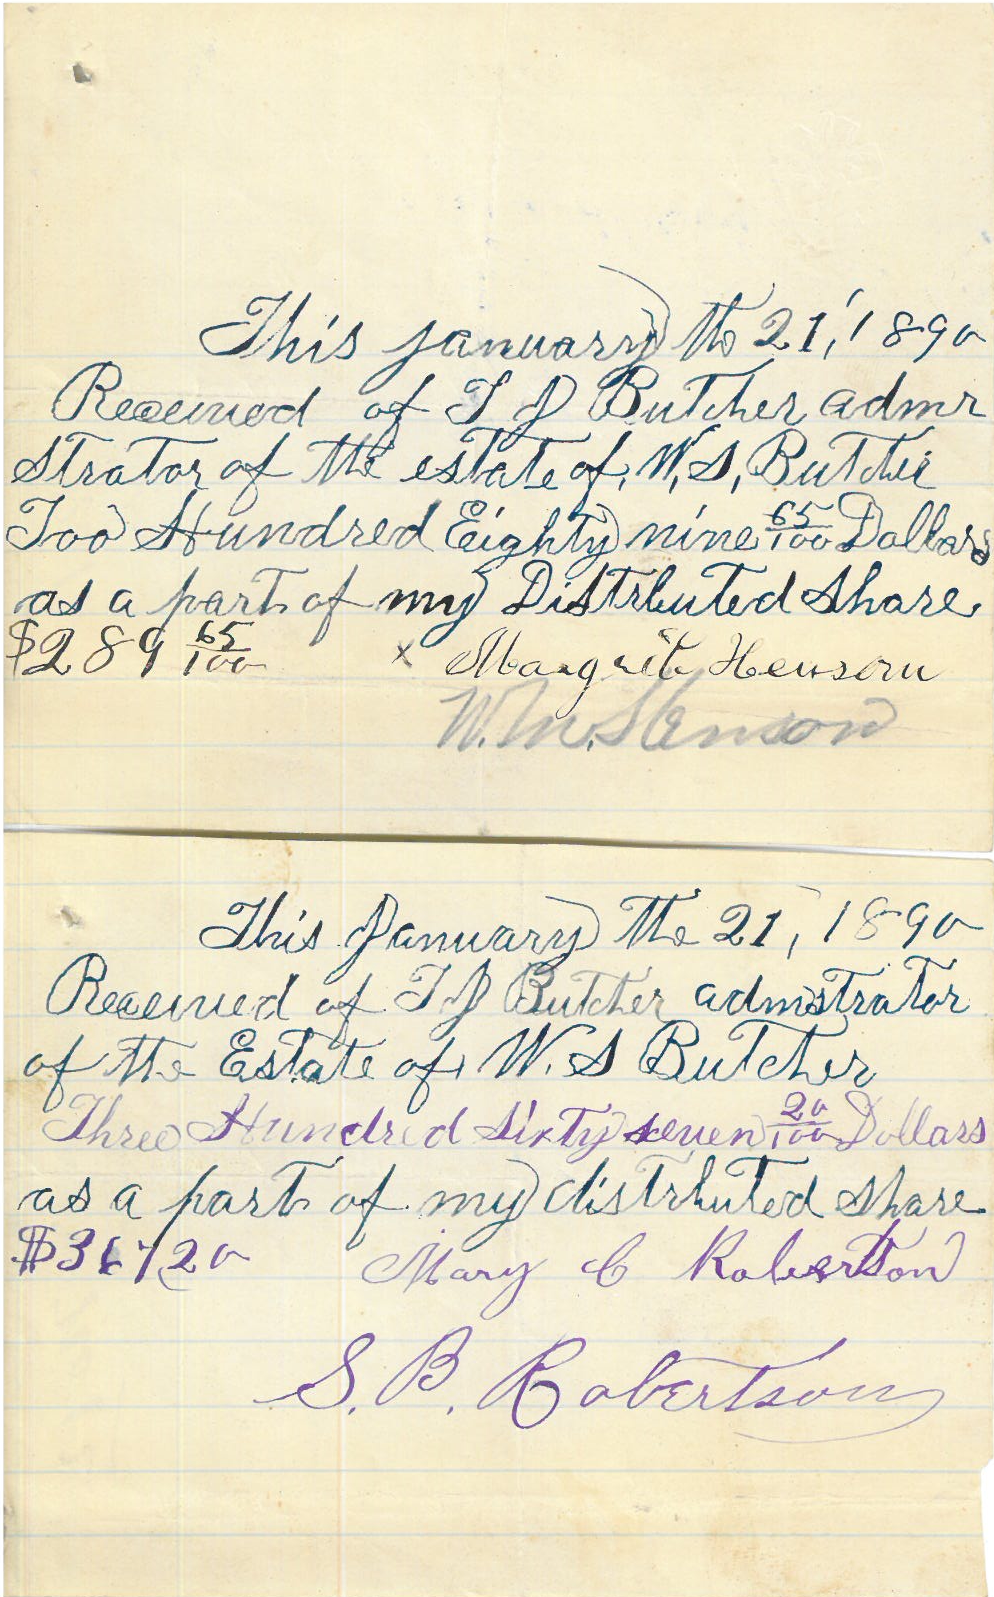 This january the 21, 1890
Received of T J Butcher admr
strator of the estate of W. S. Butcher
Too Hundred Eighty nine 65/100 Dollars
as a part of my Distributed Share
$289 65/100 x Margrit Henson
W. M. Henson
This January the 21, 1890
Received of T J Butcher admstrator
of the Estate of W. S Butcher
Three Hundred sixty seven 20/100 Dollars
as a part of my distributed share
$367 20 Mary C Robertson
S. B. Robertson